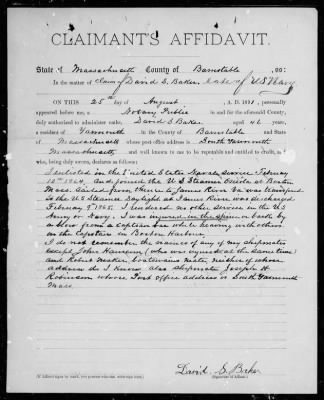 CLAIMANT'S AFFIDAVIT.
State of Massachusetts County of Barnstable, ss:
In the matter of Claim of David S. Baker late of U.S. Navy
ON THIS 25th day of August, A. D. 189, personally
appeared before me, a Notary Public in and for the aforesaid County,
duly authorized to administer oaths, David S Baker aged 46 years,
a resident of Yarmouth in the County of Barnstable and State
of Massachusetts whose post-office address is South Yarmouth
Massachusetts and well known to me to be reputable and entitled to credit, and
who, being duly sworn, declares as follows:
I enlisted in the United States Naval service February
1864, and joined the U S Steamer at Boston
Mass. Sailed from there to James River Va was transferred
to the U S Steamer Daylight at James River was discharged
February 9th 1865. I rendered no other service in the U S
Army or Navy. I was injured in the spine or back by
a blow from a capstan bar while heaving with others
on the Capstan in Boston Harbour.
I do not remember the names of any of my shipmates
except John Hanson, (who was injured at the same time)
and Robert boatswains mate, neither of whose
address do I know also shipmate Joseph H
Robinson whose Post office address is South Yarmouth
Mass.
David S. Baker
(If Affiant signs by mark, two persons who can write sign here.)
(Signature of Affiant.)